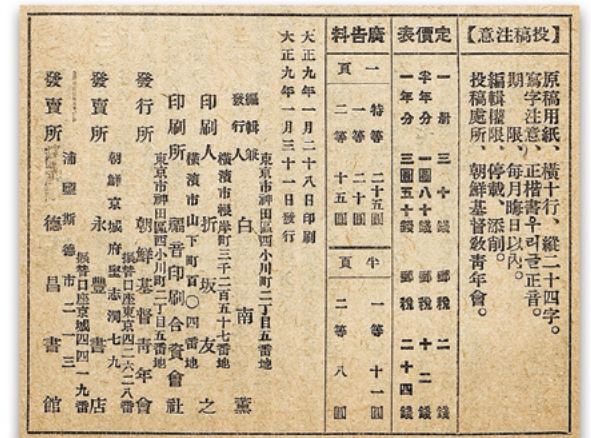 【投稿注意】
原稿用紙、橫十行、縱二十四字。
寫字注意、正楷書우리글正音。
期 限、每月晦日以內。
編輯權限、停載、添削。
投稿處所、朝鮮基督敎靑年會。
定價表
一 册 三十錢 郵稅 二錢
半年分 一圓八十錢 郵稅 十二錢
一年分 三圓五十錢 郵稅 二十四錢
廣告料
一頁
特等 二十五圓
一等 二十圓
二等 十五圓
半頁
一等 十一圓
二等 八圓
大正九年一月二十八日印刷
大正九年一月三十一日發行
東京市神田區西小川町二丁目五番地
編輯兼發行人 白南薰
橫濱市根岸町三千二百五十七番地
印刷人 折坂友之
橫濱市山下町百〇四番地
印刷所 福音印刷合資會社
東京市神田區西小川町二丁目五番地
發行所 朝鮮基督靑年會
振替口座東京四二六二八番
朝鮮京城府堅志洞七九
發賣所 永豐書店
振替口座京城四四一九番
浦鹽斯德市二一三
發賣所 德昌書館